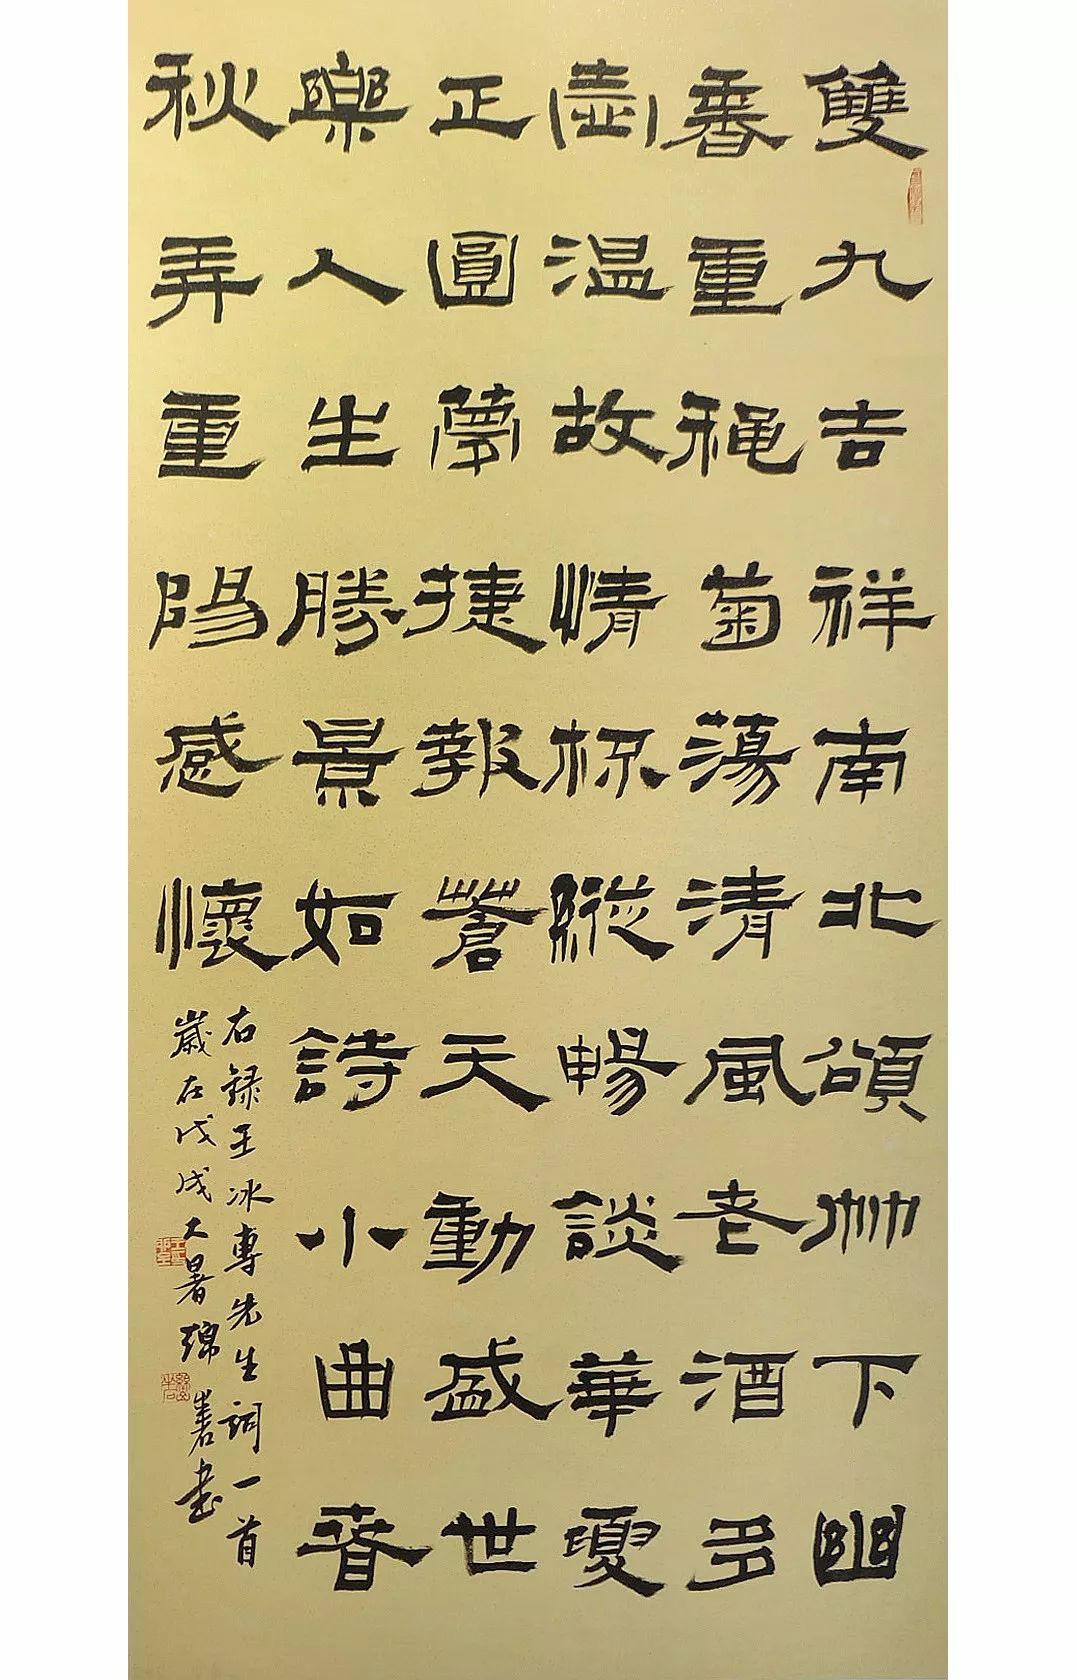 雙九吉祥南北頌下幽
香重穐菊蕩清風老酒多
壺溫故情杯縱暢談華夏
正圓夢捷報蒼天動盛世
樂人生勝景如詩小曲春
秋弄重陽感懷
右錄王冰專先生詞一首
歲在戊戌大暑書